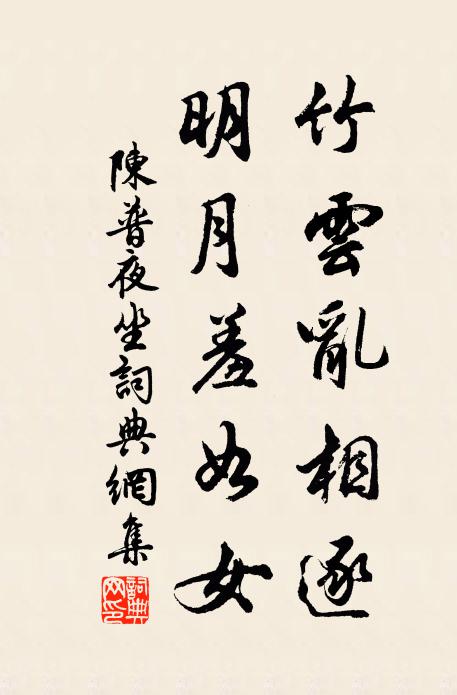 竹雲亂相逐
明月羞如女
陳普夜坐詞典網集
詞典
網印